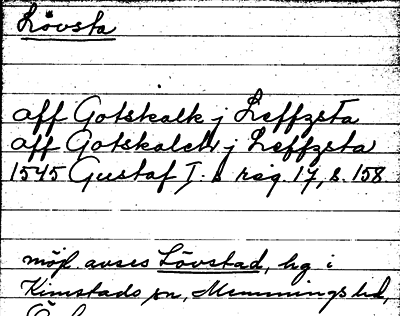 Lövsta
aff Gotskalk j Leffzsta
aff Gotskalck j Leffzsta
1545 Gustaf I:s reg. 17, s. 158
möjl. avses Lövstad, hg i
Kimstads sn, Memmings hd,